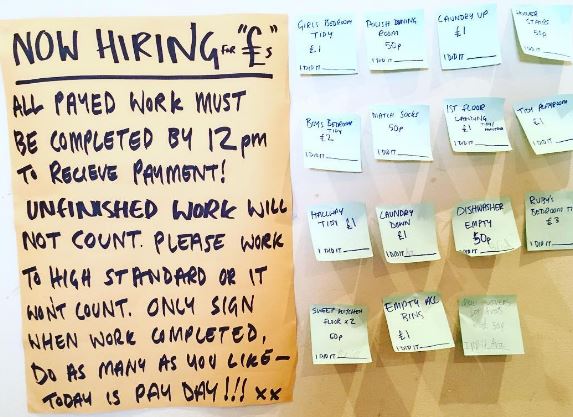 NOW HIRING FOR "£s"
ALL PAYED WORK MUST
BE COMPLETED BY 12pm
TO RECIEVE PAYMENT!
UNFINISHED WORK WILL
NOT COUNT. PLEASE WORK
TO HIGH STANDARD OR IT
WON'T COUNT. ONLY SIGN
WHEN WORK COMPLETED,
DO AS MANY AS YOU LIKE—
TODAY IS PAY DAY!!! xx
GIRLS BEDROOM
TIDY
£1
I DID IT
POLISH DINING
ROOM
50p
I DID IT
LAUNDRY UP
£1
I DID IT
HOOVER
STAIRS
50p
I DID IT
BOYS BEDROOM
TIDY
£2
I DID IT
MATCH SOCKS
50p
I DID IT
1ST FLOOR
LANDING
£1 TIDY
I DID IT
TIDY
£1
I DID IT
HALLWAY
TIDY £1
I DID IT
LAUNDRY
DOWN
£1
I DID IT
DISHWASHER
EMPTY
50p
I DID IT
RUBY'S
BEDROOM
£3
I DID IT
SWEEP KITCHEN
FLOOR x2
60p
I DID IT
EMPTY ALL
BINS
£1
I DID IT
50p